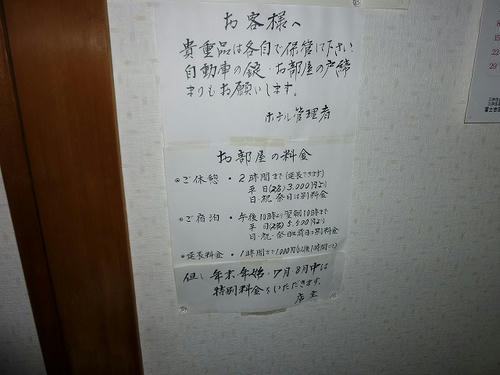 お客様へ
貴重品は各自で保管して下さい
自動車の錠・お部屋の戸締
まりもお願いします。
ホテル管理者
お部屋の料金
◎ご休憩・2時間まで(延長できます)
平日(2名)3.000円より
日・祝・祭日は別料金
◎ご宿泊・午後10時より翌朝10時まで
平日(2名)5.500円より
日・祝・祭日は別料金
◎延長料金・1時間まで1000円(以後1時間ごと)
但し 年末、年始・7月8月中は
特別料金をいただきます。
店主